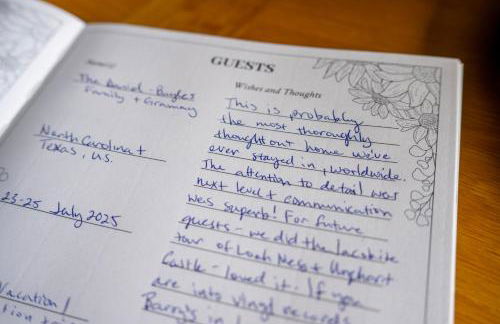 GUESTS
Name(s)
The Daniel-Burgles
Family + Grammy
North Carolina +
Texas, US.
23-25 July 2025
Vacation!
Wishes and Thoughts
This is probably
the most thoroughly
thought out home we've
ever stayed in, worldwide.
The attention to detail was
next level + communication
was superb! For future
guests - we did the Jacobite
tour of Loch Ness + Urquhart
Castle - loved it. If you
are into vinyl records
in